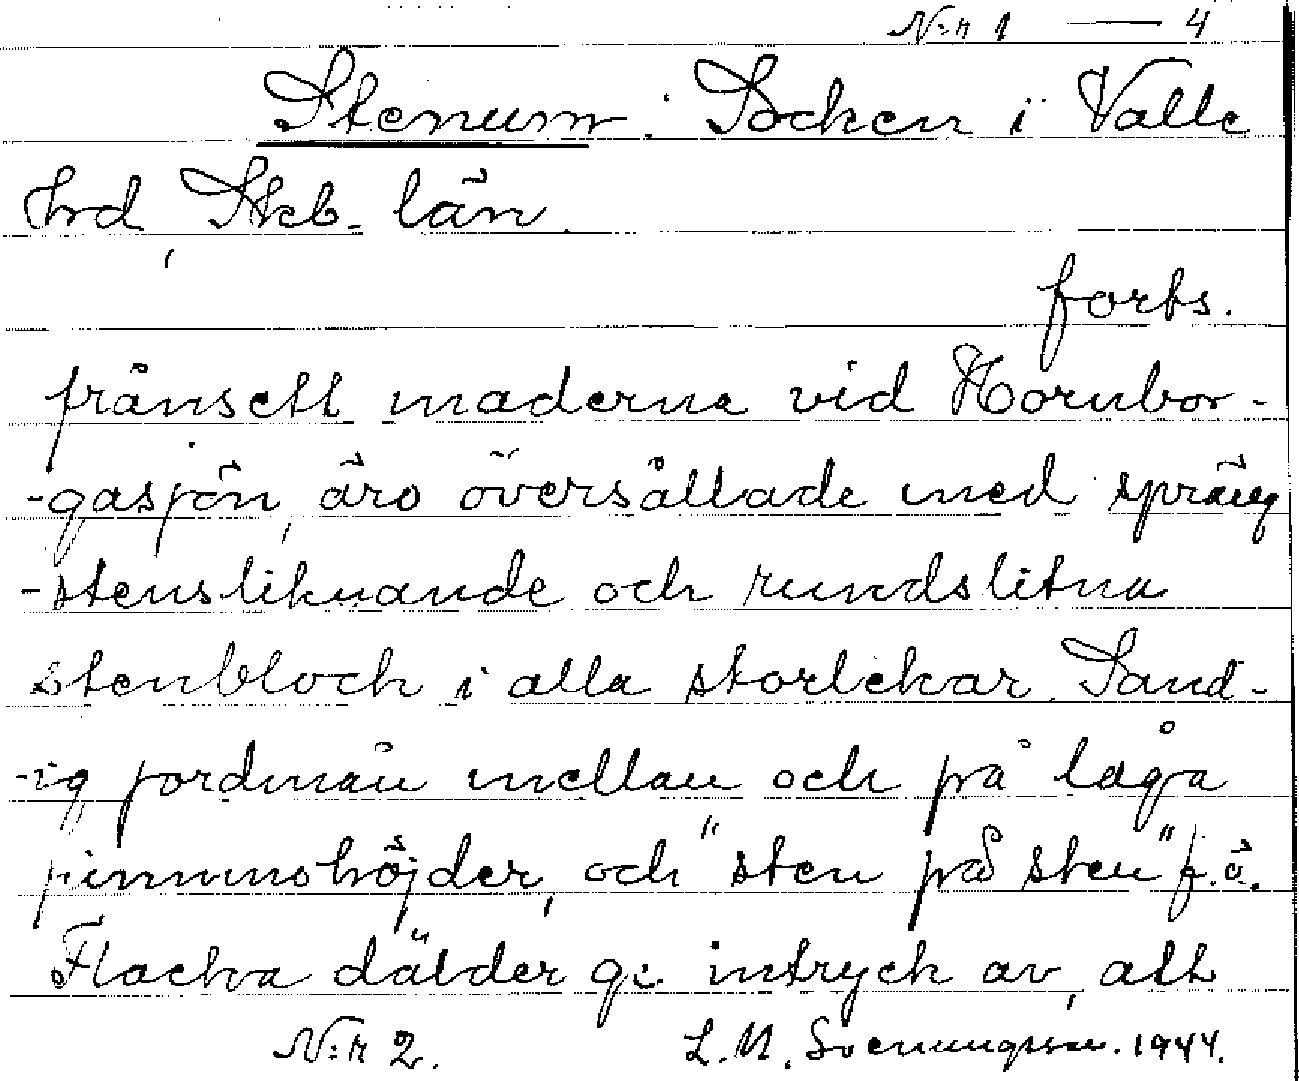 N:r 1 — 4
Stenum: Socken i Valle
Hrd, Skb. län.
forts.
frånsett maderna vid Hornbor-
-gasjön, äro översållade med spräng
-stensliknande och rundslitna
stenblock i alla storlekar. Sand-
-ig jordmån mellan och på låga
pinnmohöjder, och "sten på sten" f.ö.
Flacka dälder ge intryck av, att
N:r 2. L.M. Svenungsson. 1944.